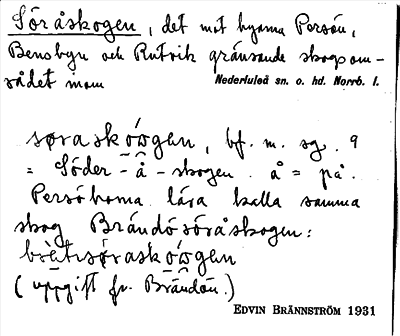 Söråskogen, det mot byarna Persön,
Bensbyn och Rutvik gränsande skogsom-
rådet inom Nederluleå sn. o. hd. Norrb. l.
søraskóogen, bf. m. sg.
= Söder-å-skogen. å = på.
Persöborna lära kalla samma
skog Brändösöråskogen:
(uppgift fr. Brändön.)
EDVIN BRÄNNSTRÖM 1931